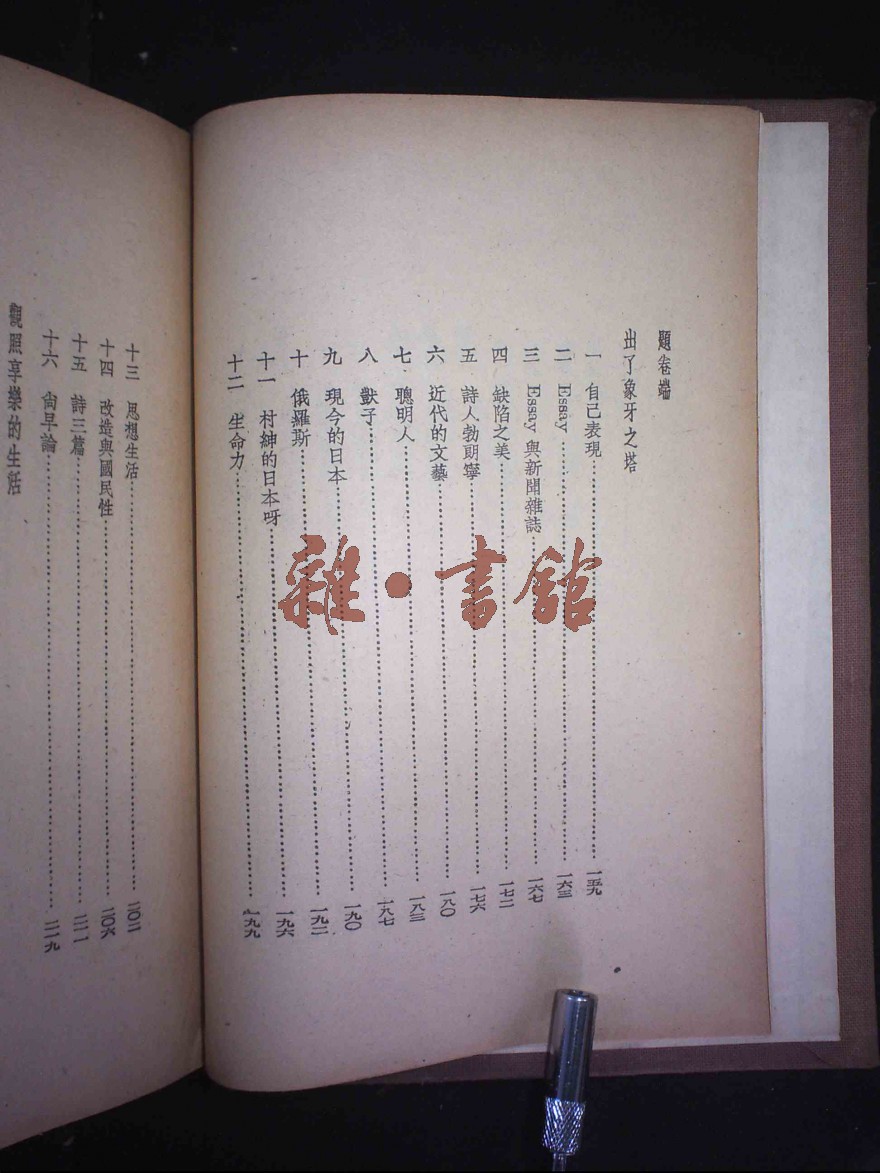 題卷端
出了象牙之塔
一 自己表現……一五九
二 Essay……一六三
三 Essay與新聞雜誌……一六七
四 缺陷之美……一七二
五 詩人勃朗寧……一七六
六 近代的文藝……一八〇
七 聰明人……一八三
八 獃子……一八七
九 現今的日本……一九〇
十 俄羅斯……一九二
十一 村紳的日本呀……一九六
十二 生命力……一九九
十三 思想生活……二〇二
十四 改造與國民性……二〇六
十五 詩三篇……二一一
十六 尙早論……二一九
觀照享樂的生活
雜·書館